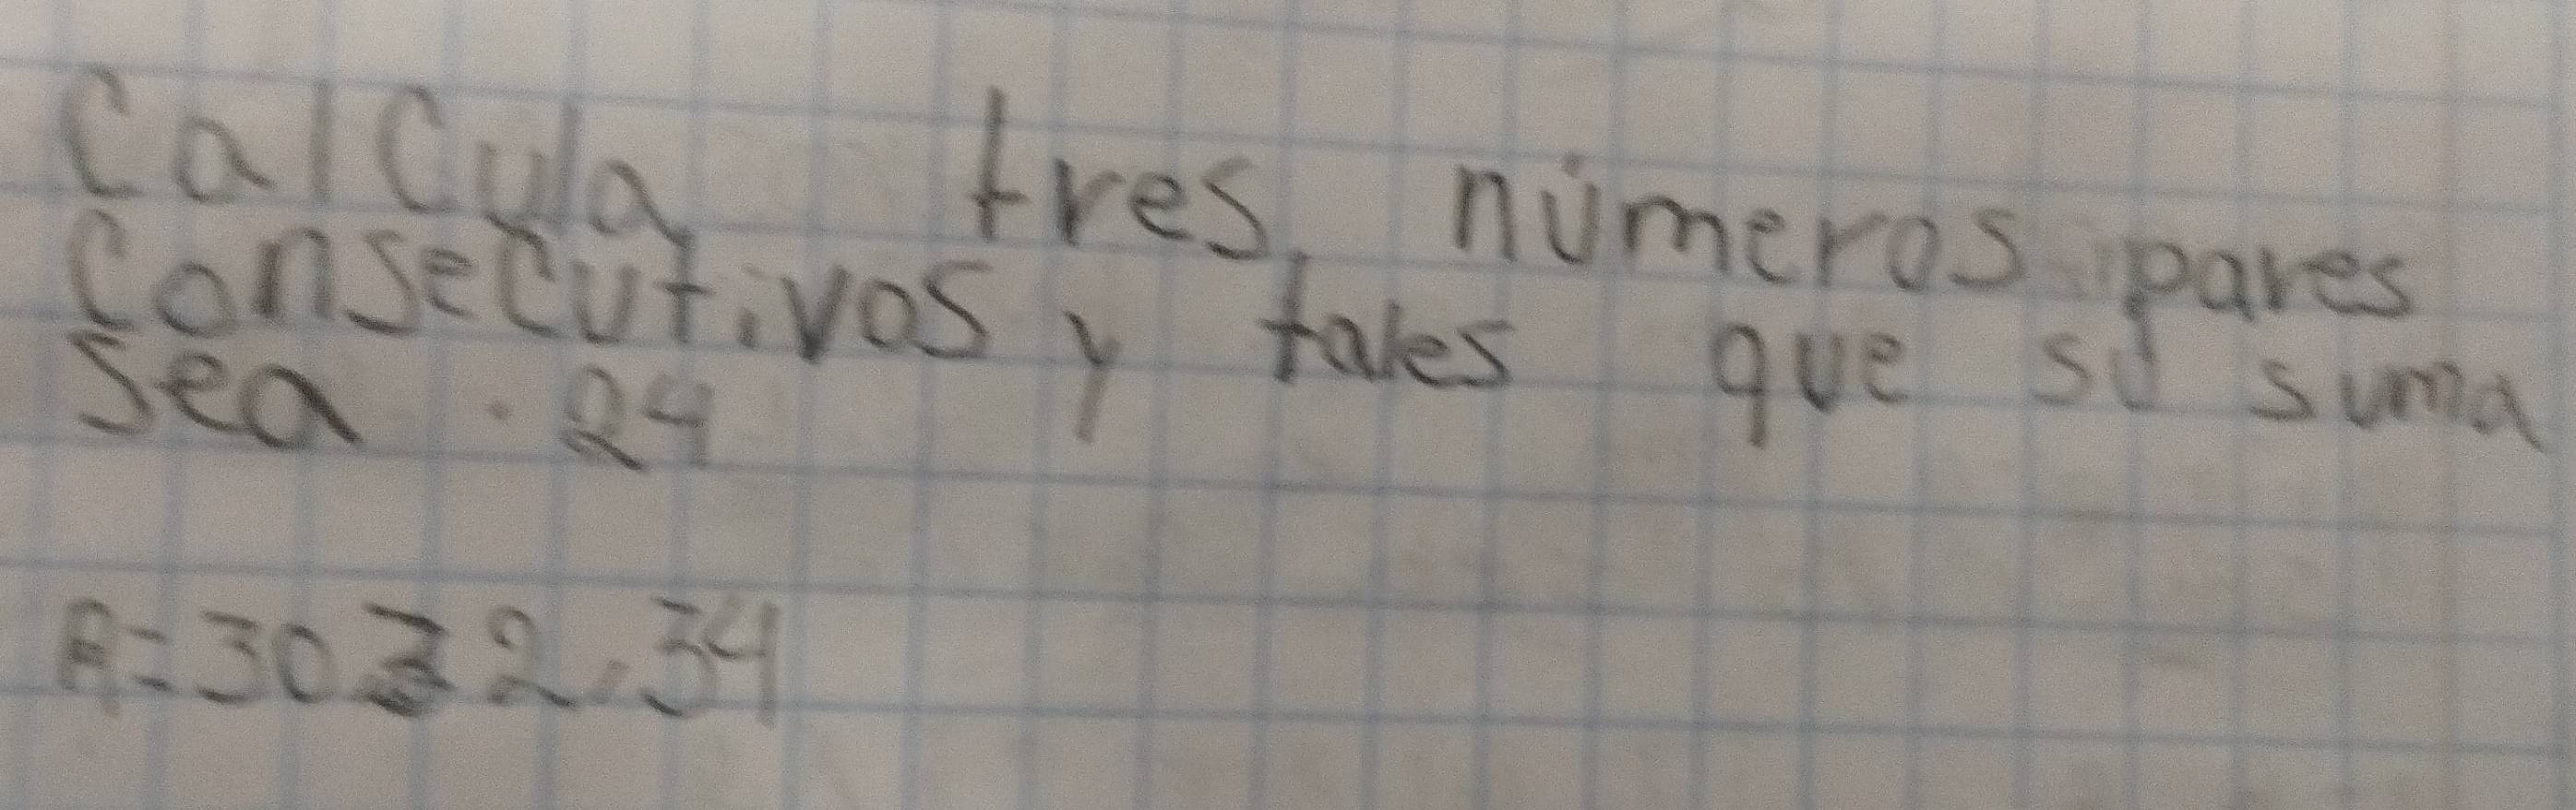 Calcula tres números pares
consecutivos y tales que su suma
sea 24
R=30 32, 34